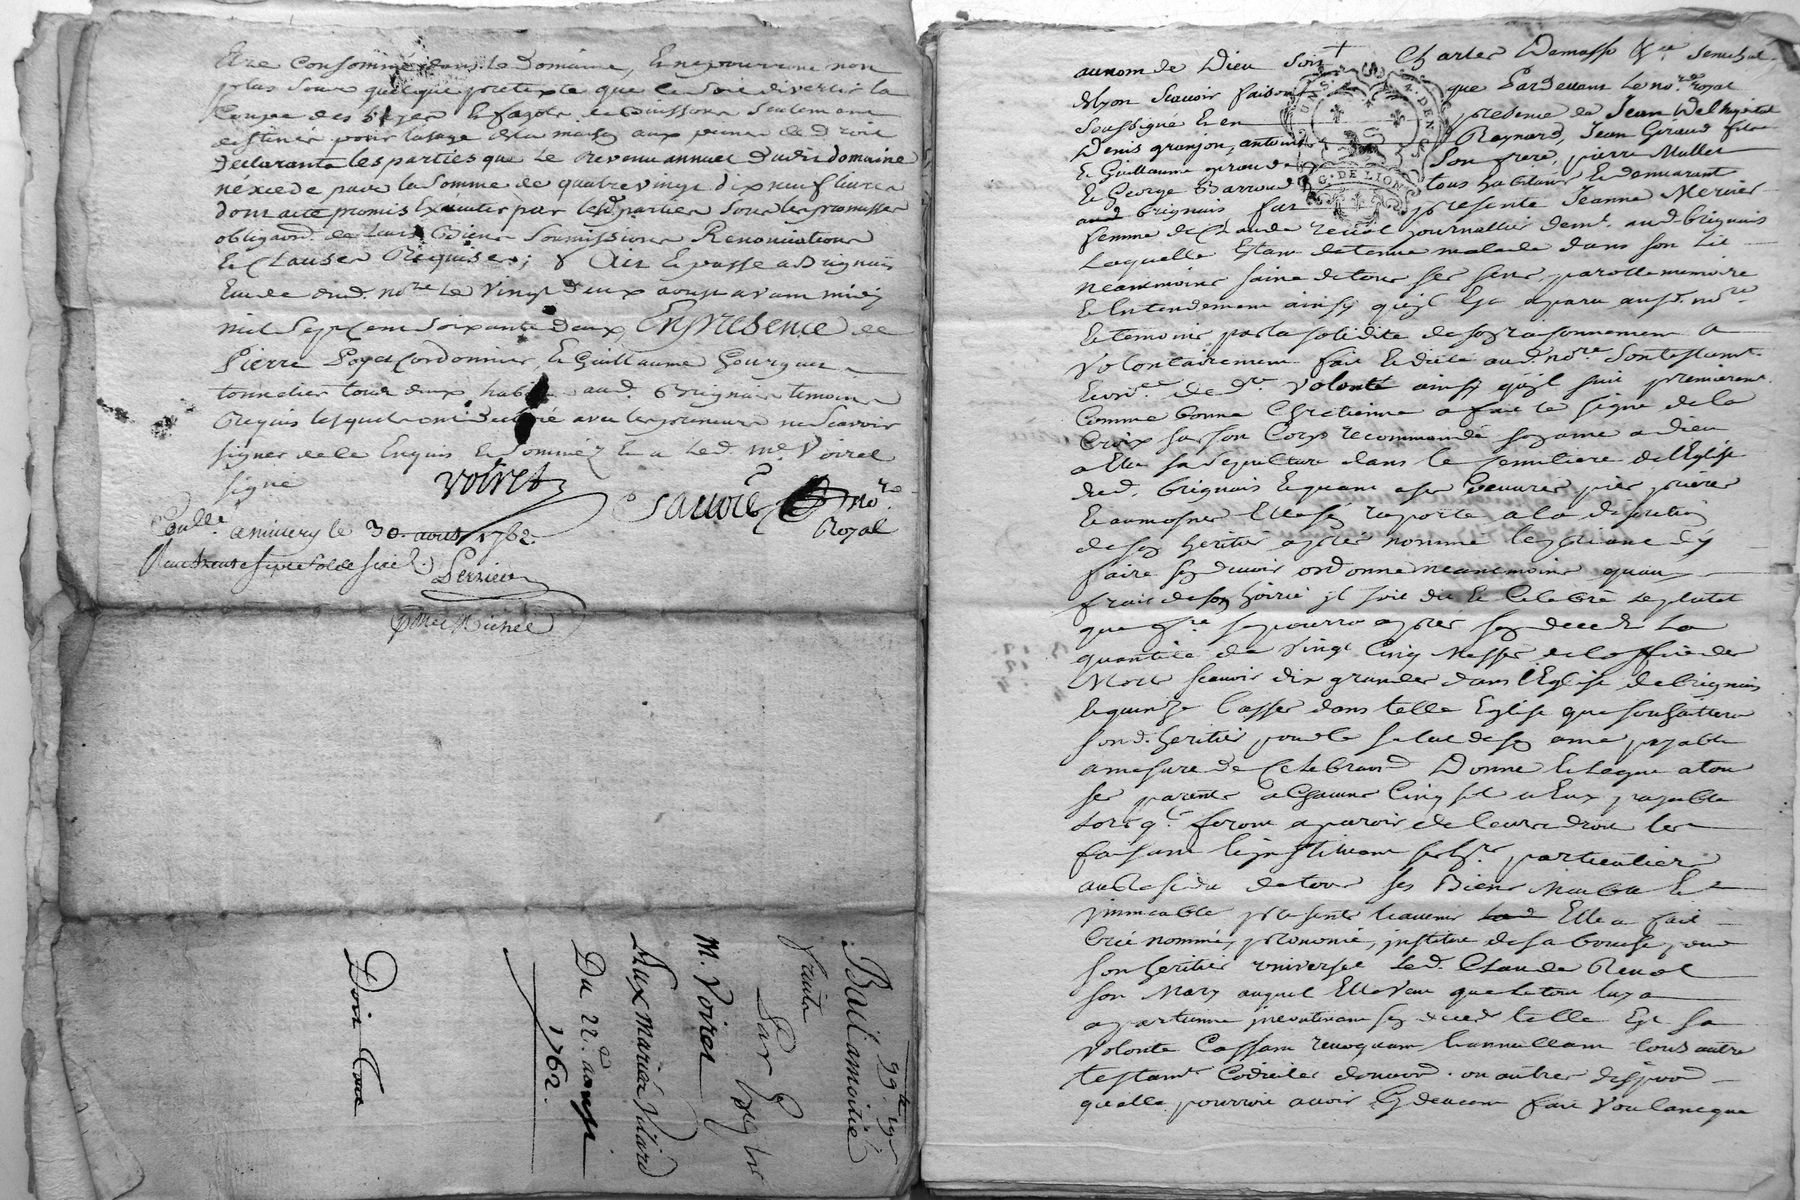 Etre Consommé dans le Domaine,
plus sous quelque pretexte que ce soit divertir la
Coupe des
destinés pour lusage de la maison aux peines de Droit
Declarants les parties que Le Revenu annuel dudit domaine
néxcede pas la Somme de quatre vingt dix neuf livres
dont acte promis Executer par lesd. parties sous les promesses
obligaōn. de leurs Biens Soumissions Renonciations
Et Clauses Requises; & fait et passé a Brignais
Etude dud. nore. Le Vingt deux aoust avant midy
mil Sept Cent Soixante Deux, En presence de
Pierre Cordonnier, Et Guillaume
tonnelier tous deux habit. aud. Brignais temoins
Requis lesquels ont declaré avec les preneurs ne scavoir
signer de ce Enquis Et sommés Et a Led. me. Voiret
signé
Voiret
nore.
Royal
Coullé. a mivery le 30. aoust 1762.
Reçu trente sept sols
22. a
Bail a moitié
fruits
Par
M. Voiret
Aux Mariés Vilard
Du 22.e aoust
1762.
Doit Coce
au nom de Dieu soit Charles Demasso &ca. senechal
de lyon Scavoir faisons que Pardevant Le nore. royal
Soussigné Et en presence de Jean Delhopital
Denis granjon, antoine Reynard, Jean Giraud fils
Et Guillaume giraud Son frere, pierre Mullet
Et George Barroud tous habitans Et demeurant
aud. Brignais fut presente Jeanne Mercier
femme de Claude revol journallier demt. aud. brignais
Laquelle Estant detenue malade dans son Lit
neanmoins saine de tous ses sens, parolle memoire
Et Entendement ainsy qu'jl Est aparu aud. nore.
Et temoins par la solidité de son raisonnement a
Volontairement fait Et dicté aud. nore. Son testamt.
Et ordce. de dre. Volonté ainsy qu'jl suit premieremt.
Comme bonne Chretienne a fait le signe de la
Croix sur son Corps recommandé son ame a dieu
a Elu sa sepulture dans le semetiere de l'Eglise
dud. brignais Et quant a ses œuvres pies prieres
Et aumosnes Elle s'en raporte a la discretion
de son heritier apres nommé
faire son devoir ordonne neanmoins qu'aux
frais de son hoirie jl soit dit Et Celebré le plutot
que fre. se pourra apres son deced La
quantité de Vingt Cinq Messes de l'office des
Morts scavoir dix grandes dans l'Eglise de brignais
Et quinze basses dans telle Eglise que souhaittera
sond. heritier pour le salut de son ame payable
a mesure de Celebraōn Donne Et Legue a tous
ses parents a Chacun Cinq sols a Eux payable
Lorsq'. feront aparoir de leurs droits les
faisant Et jnstituant ses hrs. particuliers
au Residu de tous ses Biens Meuble Et
jmmeuble presents Et avenir Elle a fait
Créé nommé, prononcé, jnstitué de sa bouche pour
son heritier Universel Led. Claude Revol
son Mary auquel Elle Veut que le tout luy
apartienne jncontinant son deced telle Est sa
Volonté Cassant revoquant Et annullant tous autre
testamts. Codicilles donnaōn. ou autres dispoōn
quelle pourroit avoir cy devant fait Voulant que